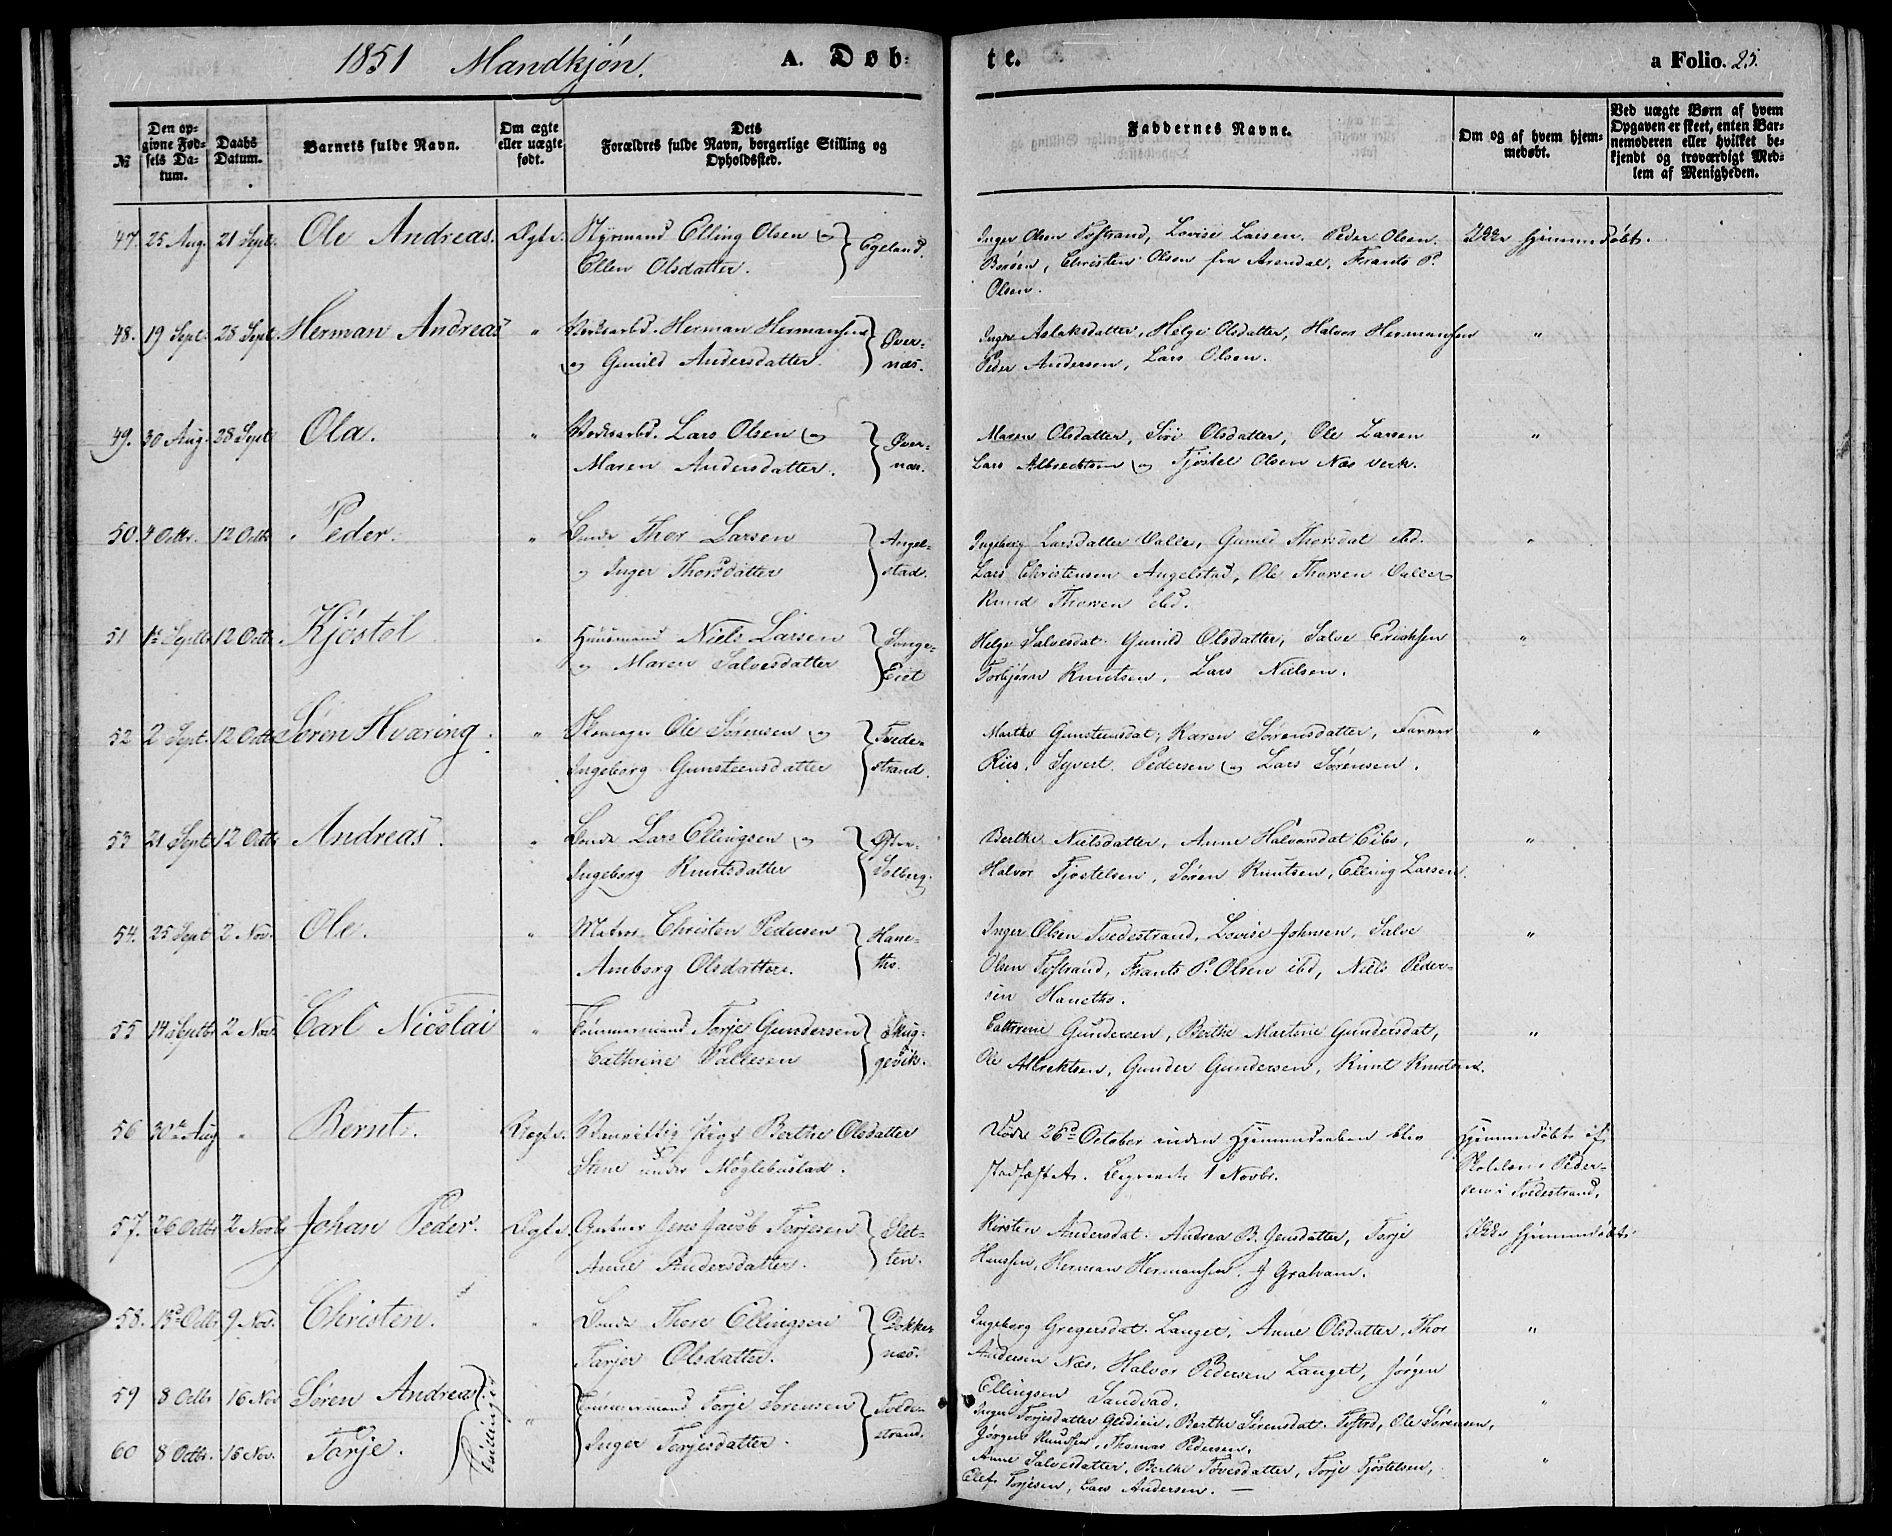 1851 Mandkjøn. A. Døb-
te. a Folio. 25.
№
Den op-
givne Fød-
sels Da-
tum.
Daabs
Datum.
Barnets fulde Navn.
Om ægte
eller uægte
født.
Dets
Forældres fulde Navn, borgerlige Stilling og
Opholdssted.
Faddernes Navne.
Om og af hvem hjem-
medøbt.
Ved uægte Børn af hvem
Opgaven er skeet, enten Bar-
nemoderen eller hvilket be-
kjendt og troværdigt Med-
lem af Menigheden.
47. 25 Aug. 21 Sept. Ole Andreas. Ægte. Styrmand Elling Olsen og
Ellen Olsdatter. Egeland.
Inger Olsen Tvstrand, Lovise Larsen. Peder Olsen.
Borøen, Christen Olsen fra Arendal, Frants P.
Olsen.
Ikke hjemmedøbt.
48. 19 Sept. 28 Sept. Herman Andreas " Verksarbd. Herman Hermansen
og Gunild Andersdatter. Øver-
næs.
Inger Aslaksdatter, Helge Olsdatter, Halvor Hermansen
Peder Andersen, Lars Olsen.
"
49. 30 Aug. 28 Sept Ola. " Verksarbd. Lars Olsen og
Maren Andersdatter. Øver-
næs.
Maren Olsdatter, Siri Olsdatter, Ole Larsen
Lars Albrechtsen og Tjøstel Olsen Næs Verk.
"
50. 4 Octbr. 12 Octb. Peder. " Bonde Thor Larsen
og Inger Thorsdatter Angel-
stad.
Ingeborg Larsdatter Valle, Gunild Thorsdat ibd.
Lars Christensen Angelstad, Ole Thorsen Valle
Knud Thorsen ibd.
"
51 12 Octb. Kjøstol " Huusmand Niels Larsen
og Maren Salvesdatter Songe-
Eiet
Helge Salvesdat. Gunild Olsdatter, Salve Erichsen
Torbjørn Knutsen, Lars Nielsen.
"
52 2 Sept. 12 Octb. Søren Hværing. " Ole Sørensen og
Ingeborg Gunsteensdatter Tvede-
strand.
Marthe Gunsteensdat, Karen Sørensdatter,
Riis, Syvert Pedersen og Lars Sørensen.
"
53 21 Sept. 12 Octb Andreas. " Bonde Lars Ellingsen og
Ingeborg Knutsdatter Øster-
Solberg.
Berthe Nielsdatter, Anne Halvorsdat Eibo,
Halvor Tjøstelsen, Søren Knutsen, Elling Larsen.
"
54. 25 Sept 2 Nov. Ole. " Matros Christen Pedersen
Amborg Olsdatter. Hane-
tho.
Inger Olsen Tvedestrand, Lovise Johnsen, Salve
Olsen Tvstrand, Frants P. Olsen ibd, Niels Peder-
sen Hanetho.
"
55 14 Septbr 2 Nov. Carl Nicolai " Tømmermand Torje Gundersen
Cathrine Pallesen Skug-
gevik.
Cathrine Gundersen, Berthe Martine Gundersdat,
Ole Albrektsen, Gunder Gundersen, Knut Knutsen.
"
56 30te Aug " Bernt. Uægte. Vanvittig Pige Berthe Olsdatter
Stene under Møglebustad.
Døde 26de October inden Hjemmedaaben blev
stadfæstet. Begravet 1 Novbr.
Hjemmedøbt af
Peder-
sen i Tvedestrand.
57. 26 Octbr 2 Novbr Johan Peder. Ægte. Gartner Jens Jacob Torjesen
Anne Andersdatter. Slet-
ten.
Kirsten Andersdat. Andrea B. Jensdatter, Torje
Hansen, Herman Hermansen. J Graham.
Ikke hjemmedøbt
58. 15de Octbr 9 Nov. Christen. " Bonde Thore Ellingsen
Tarjer Olsdatter. Dokke-
næs.
Ingeborg Gregersdat. Langet, Anne Olsdatter, Thor
Andersen Næs, Halvor Pedersen Langet, Jørgen
Ellingsen Sandvad.
"
59 8 Octbr 16 Nov Søren Andreas " Tømmermand Torje Sørensen
Inger Torjesdatter. Tvede-
strand.
Inger Torjesdatter Berthe Sørensdat. Tvstrd, Ole Sørensen,
Jørgen Knudsen, Thomas Pedersen.
"
60 8 Octbr. 16 Nov. Tarje. Tvillinger "
Anne Salvesdatter, Berthe Tovesdatter, Torje Tjøstelsen,
Elef Torjesen, Lars Andersen. —
"